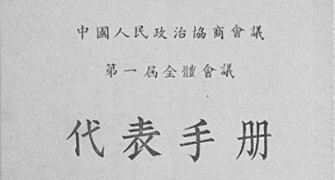 中國人民政治協商會議
第一屆全體會議
代表手册